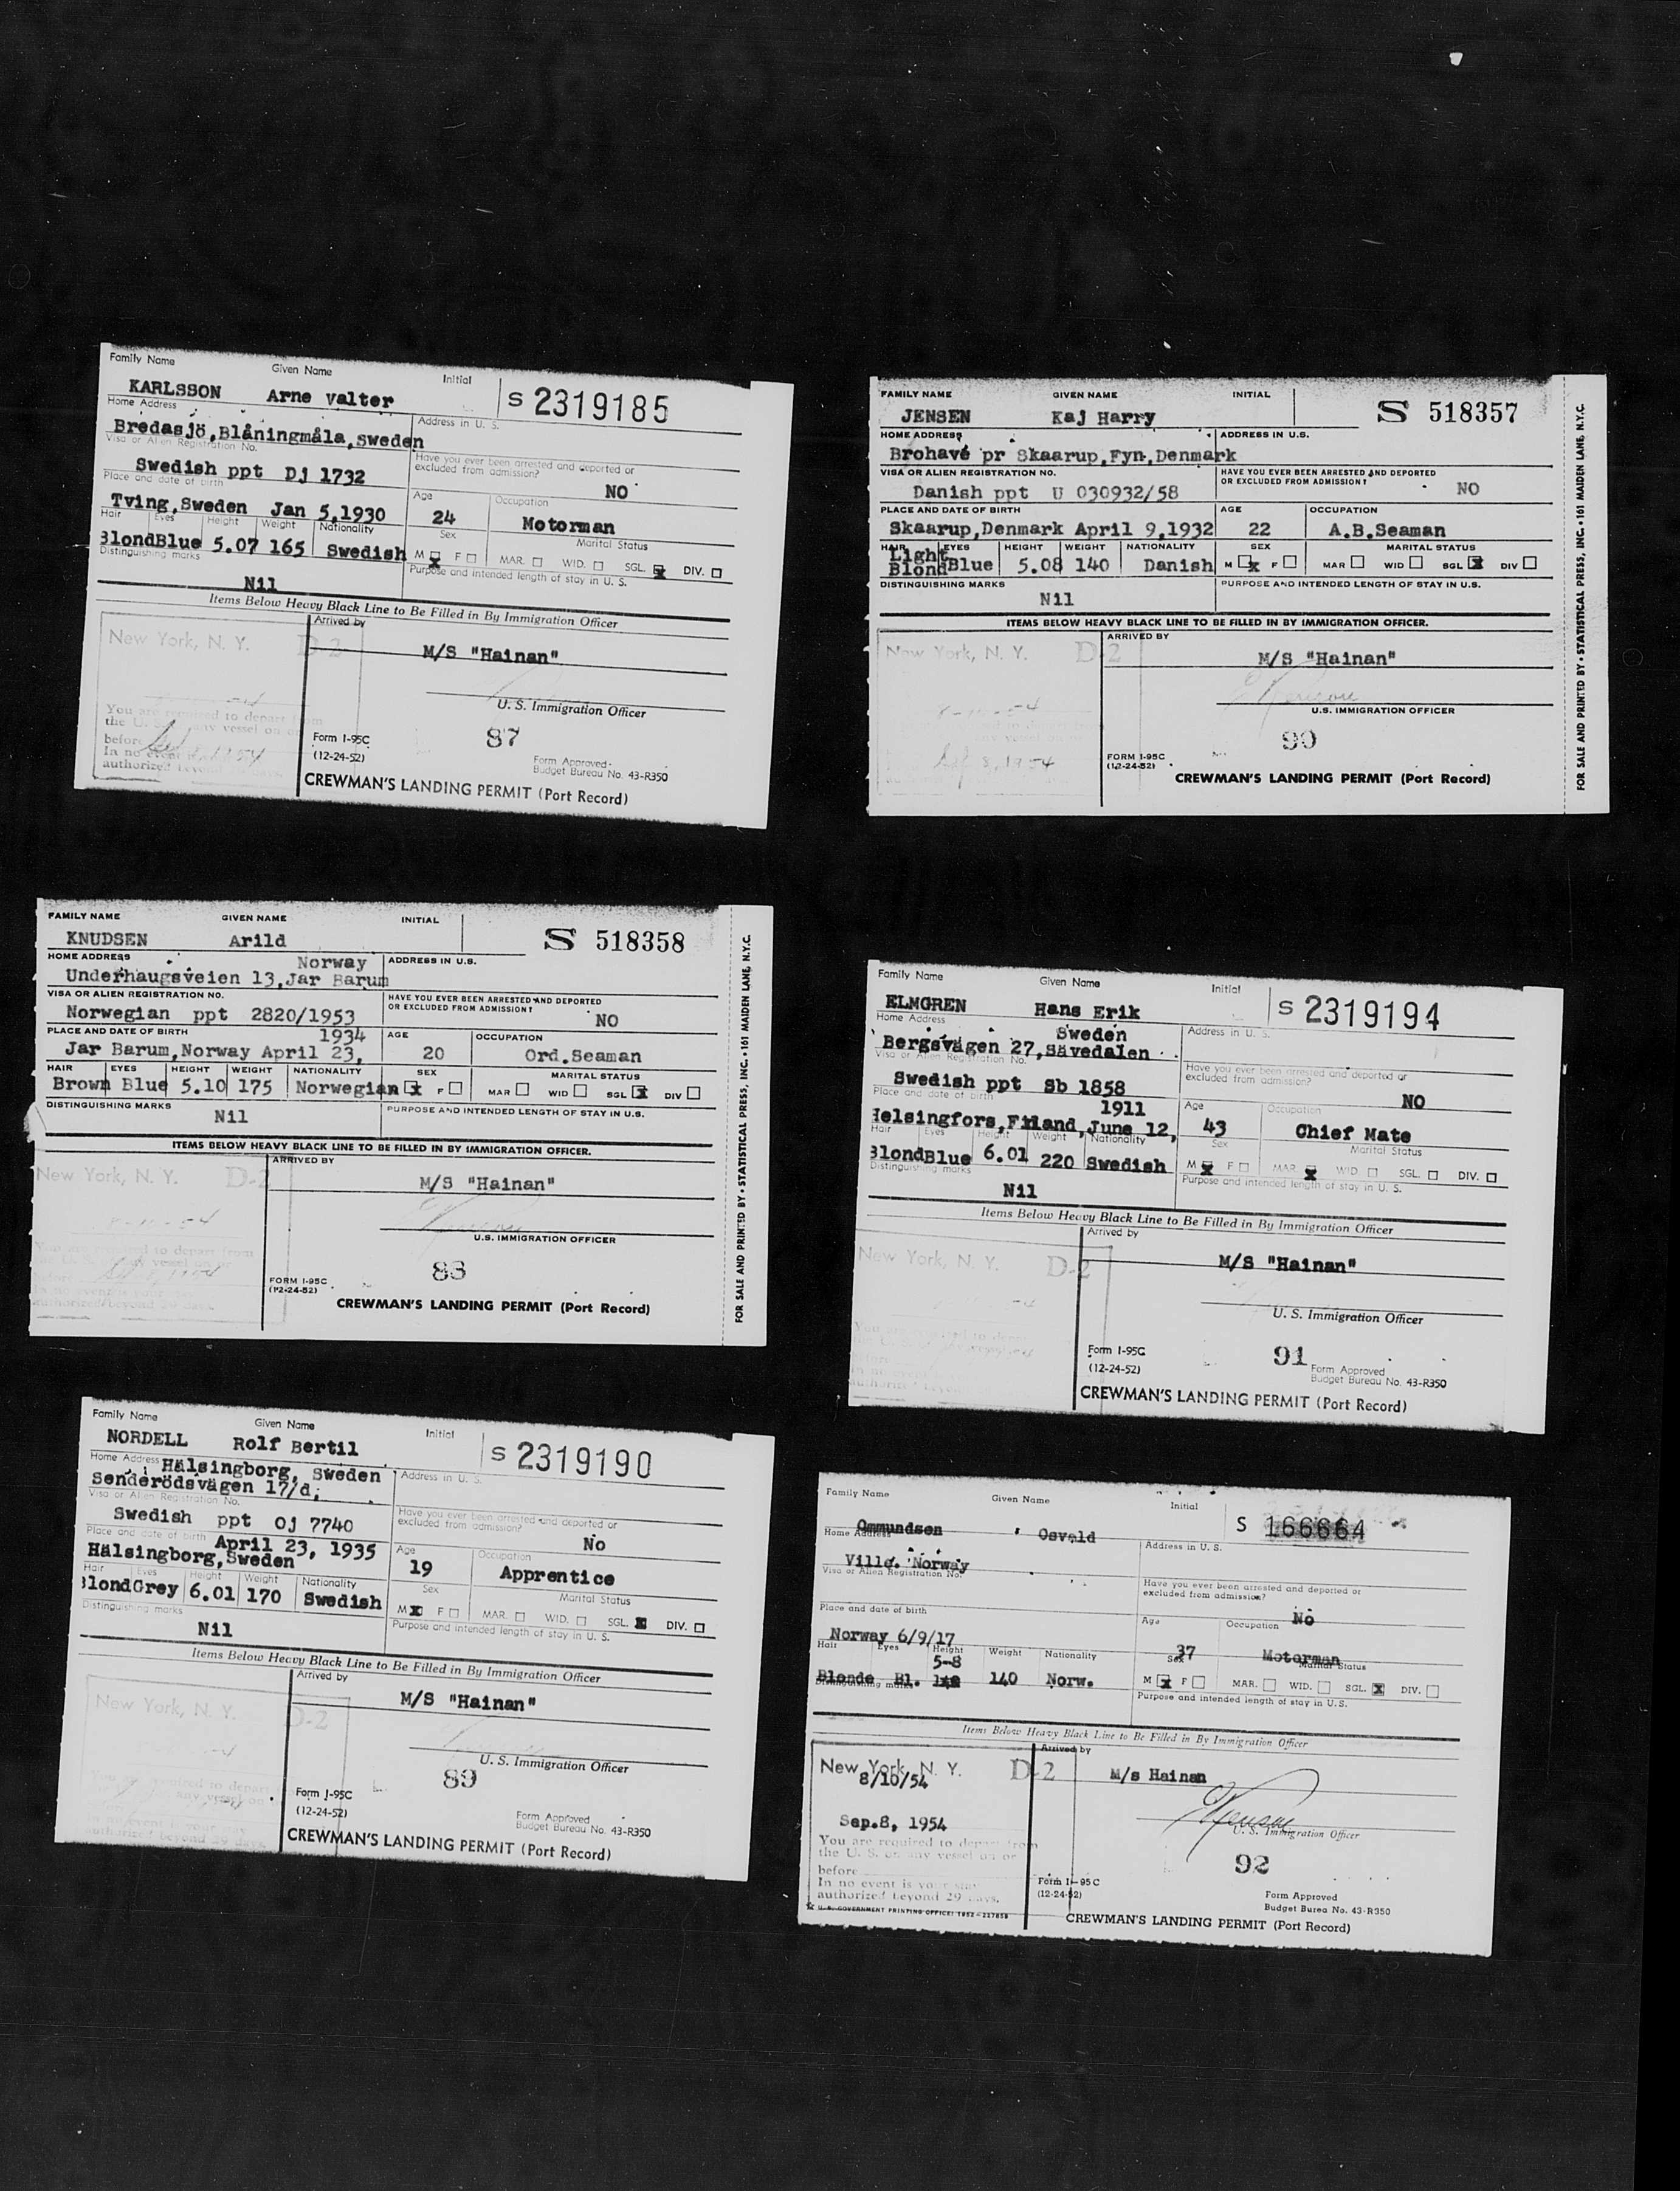 Family Name Given Name Initial
KARLSSON Arne valter S 2319185
Home Address Address in U. S.
Bredasjö,Blåningmåla,Sweden
Visa or Alien Registration No. Have you ever been arrested and deported or
excluded from admission?
Swedish ppt Dj 1732 NO
Place and date of birth Age Occupation
Tving,Sweden Jan 5,1930 24 Motorman
Hair Eyes Height Weight Nationality Sex Marital Status
BlondBlue 5.07 165 Swedish M X F MAR. WID. SGL. X DIV.
Distinguishing marks Purpose and intended length of stay in U. S.
Nil
Items Below Heavy Black Line to Be Filled in By Immigration Officer
Arrived by
New York, N. Y. D-2 M/S "Hainan"
U. S. Immigration Officer
You are required to depart from
the U. S. any vessel on or
before
In no event
authorized beyond days.
87
Form I-95C
(12-24-52)
Form Approved
Budget Bureau No. 43-R350
CREWMAN'S LANDING PERMIT (Port Record)
FAMILY NAME GIVEN NAME INITIAL
JENSEN Kaj Harry S 518357
HOME ADDRESS ADDRESS IN U.S.
Brohave pr Skaarup,Fyn,Denmark
VISA OR ALIEN REGISTRATION NO. HAVE YOU EVER BEEN ARRESTED AND DEPORTED
OR EXCLUDED FROM ADMISSION?
Danish ppt U 030932/58 NO
PLACE AND DATE OF BIRTH AGE OCCUPATION
Skaarup,Denmark April 9,1932 22 A.B.Seaman
HAIR EYES HEIGHT WEIGHT NATIONALITY SEX MARITAL STATUS
Light
Blond Blue 5.08 140 Danish M X F MAR WID SGL X DIV
DISTINGUISHING MARKS PURPOSE AND INTENDED LENGTH OF STAY IN U.S.
Nil
ITEMS BELOW HEAVY BLACK LINE TO BE FILLED IN BY IMMIGRATION OFFICER.
ARRIVED BY
New York, N. Y. D-2 M/S "Hainan"
U.S. IMMIGRATION OFFICER
90
FORM I-95C
(12-24-52)
CREWMAN'S LANDING PERMIT (Port Record)
FOR SALE AND PRINTED BY • STATISTICAL PRESS, INC. • 161 MAIDEN LANE, N.Y.C.
FAMILY NAME GIVEN NAME INITIAL
KNUDSEN Arild S 518358
HOME ADDRESS Norway ADDRESS IN U.S.
Underhaugsveien 13,Jar Barum
VISA OR ALIEN REGISTRATION NO. HAVE YOU EVER BEEN ARRESTED AND DEPORTED
OR EXCLUDED FROM ADMISSION?
Norwegian ppt 2820/1953 NO
PLACE AND DATE OF BIRTH 1934 AGE OCCUPATION
Jar Barum,Norway April 23, 20 Ord.Seaman
HAIR EYES HEIGHT WEIGHT NATIONALITY SEX MARITAL STATUS
Brown Blue 5.10 175 Norwegian X F MAR WID SGL X DIV
DISTINGUISHING MARKS PURPOSE AND INTENDED LENGTH OF STAY IN U.S.
Nil
ITEMS BELOW HEAVY BLACK LINE TO BE FILLED IN BY IMMIGRATION OFFICER.
ARRIVED BY
New York, N. Y. D-2 M/S "Hainan"
U.S. IMMIGRATION OFFICER
88
FORM I-95C
(12-24-52)
CREWMAN'S LANDING PERMIT (Port Record)
FOR SALE AND PRINTED BY • STATISTICAL PRESS, INC. • 161 MAIDEN LANE, N.Y.C.
Family Name Given Name Initial
ELMGREN Hans Erik S 2319194
Home Address Sweden Address in U. S.
Bergsvägen 27,Sävedalen
Visa or Alien Registration No. Have you ever been arrested and deported or
excluded from admission?
Swedish ppt Sb 1858 NO
Place and date of birth 1911 Age Occupation
Helsingfors,Finland,June 12, 43 Chief Mate
Hair Eyes Height Weight Nationality Sex Marital Status
BlondBlue 6.01 220 Swedish M X F MAR. X WID. SGL. DIV.
Distinguishing marks Purpose and intended length of stay in U. S.
Nil
Items Below Heavy Black Line to Be Filled in By Immigration Officer
Arrived by
New York, N. Y. D-2 M/S "Hainan"
U. S. Immigration Officer
91
Form I-95C
(12-24-52)
Form Approved
Budget Bureau No. 43-R350
CREWMAN'S LANDING PERMIT (Port Record)
Family Name Given Name Initial
NORDELL Rolf Bertil S 2319190
Home Address Hälsingborg, Sweden Address in U. S.
Senderödsvägen 17/d,
Visa or Alien Registration No. Have you ever been arrested and deported or
excluded from admission?
Swedish ppt OJ 7740 No
Place and date of birth April 23, 1935 Age Occupation
Hälsingborg,Sweden 19 Apprentice
Hair Eyes Height Weight Nationality Sex Marital Status
BlondGrey 6.01 170 Swedish M X F MAR. WID. SGL. X DIV.
Distinguishing marks Purpose and intended length of stay in U. S.
Nil
Items Below Heavy Black Line to Be Filled in By Immigration Officer
Arrived by
New York, N. Y. D-2 M/S "Hainan"
U. S. Immigration Officer
89
Form I-95C
(12-24-52)
Form Approved
Budget Bureau No. 43-R350
CREWMAN'S LANDING PERMIT (Port Record)
Family Name Given Name Initial
Ommundsen Osvald S 166664
Home Address Address in U. S.
Ville. Norway
Visa or Alien Registration No. Have you ever been arrested and deported or
excluded from admission?
No
Place and date of birth Age Occupation
Norway 6/9/17 37 Motorman
Hair Eyes Height Weight Nationality Sex Marital Status
5-8
Blonde Bl. 140 Norw. M X F MAR. WID. SGL. X DIV.
Distinguishing marks Purpose and intended length of stay in U.S.
Items Below Heavy Black Line to Be Filled in By Immigration Officer
Arrived by
New York, N. Y. D-2 M/s Hainan
8/10/54
Sep.8, 1954
U. S. Immigration Officer
You are required to depart from
the U. S. on any vessel on or
before
In no event is your stay
authorized beyond 29 days.
92
Form I-95C
(12-24-52)
Form Approved
Budget Burea No. 43-R350
U. S. GOVERNMENT PRINTING OFFICE: 1952
CREWMAN'S LANDING PERMIT (Port Record)